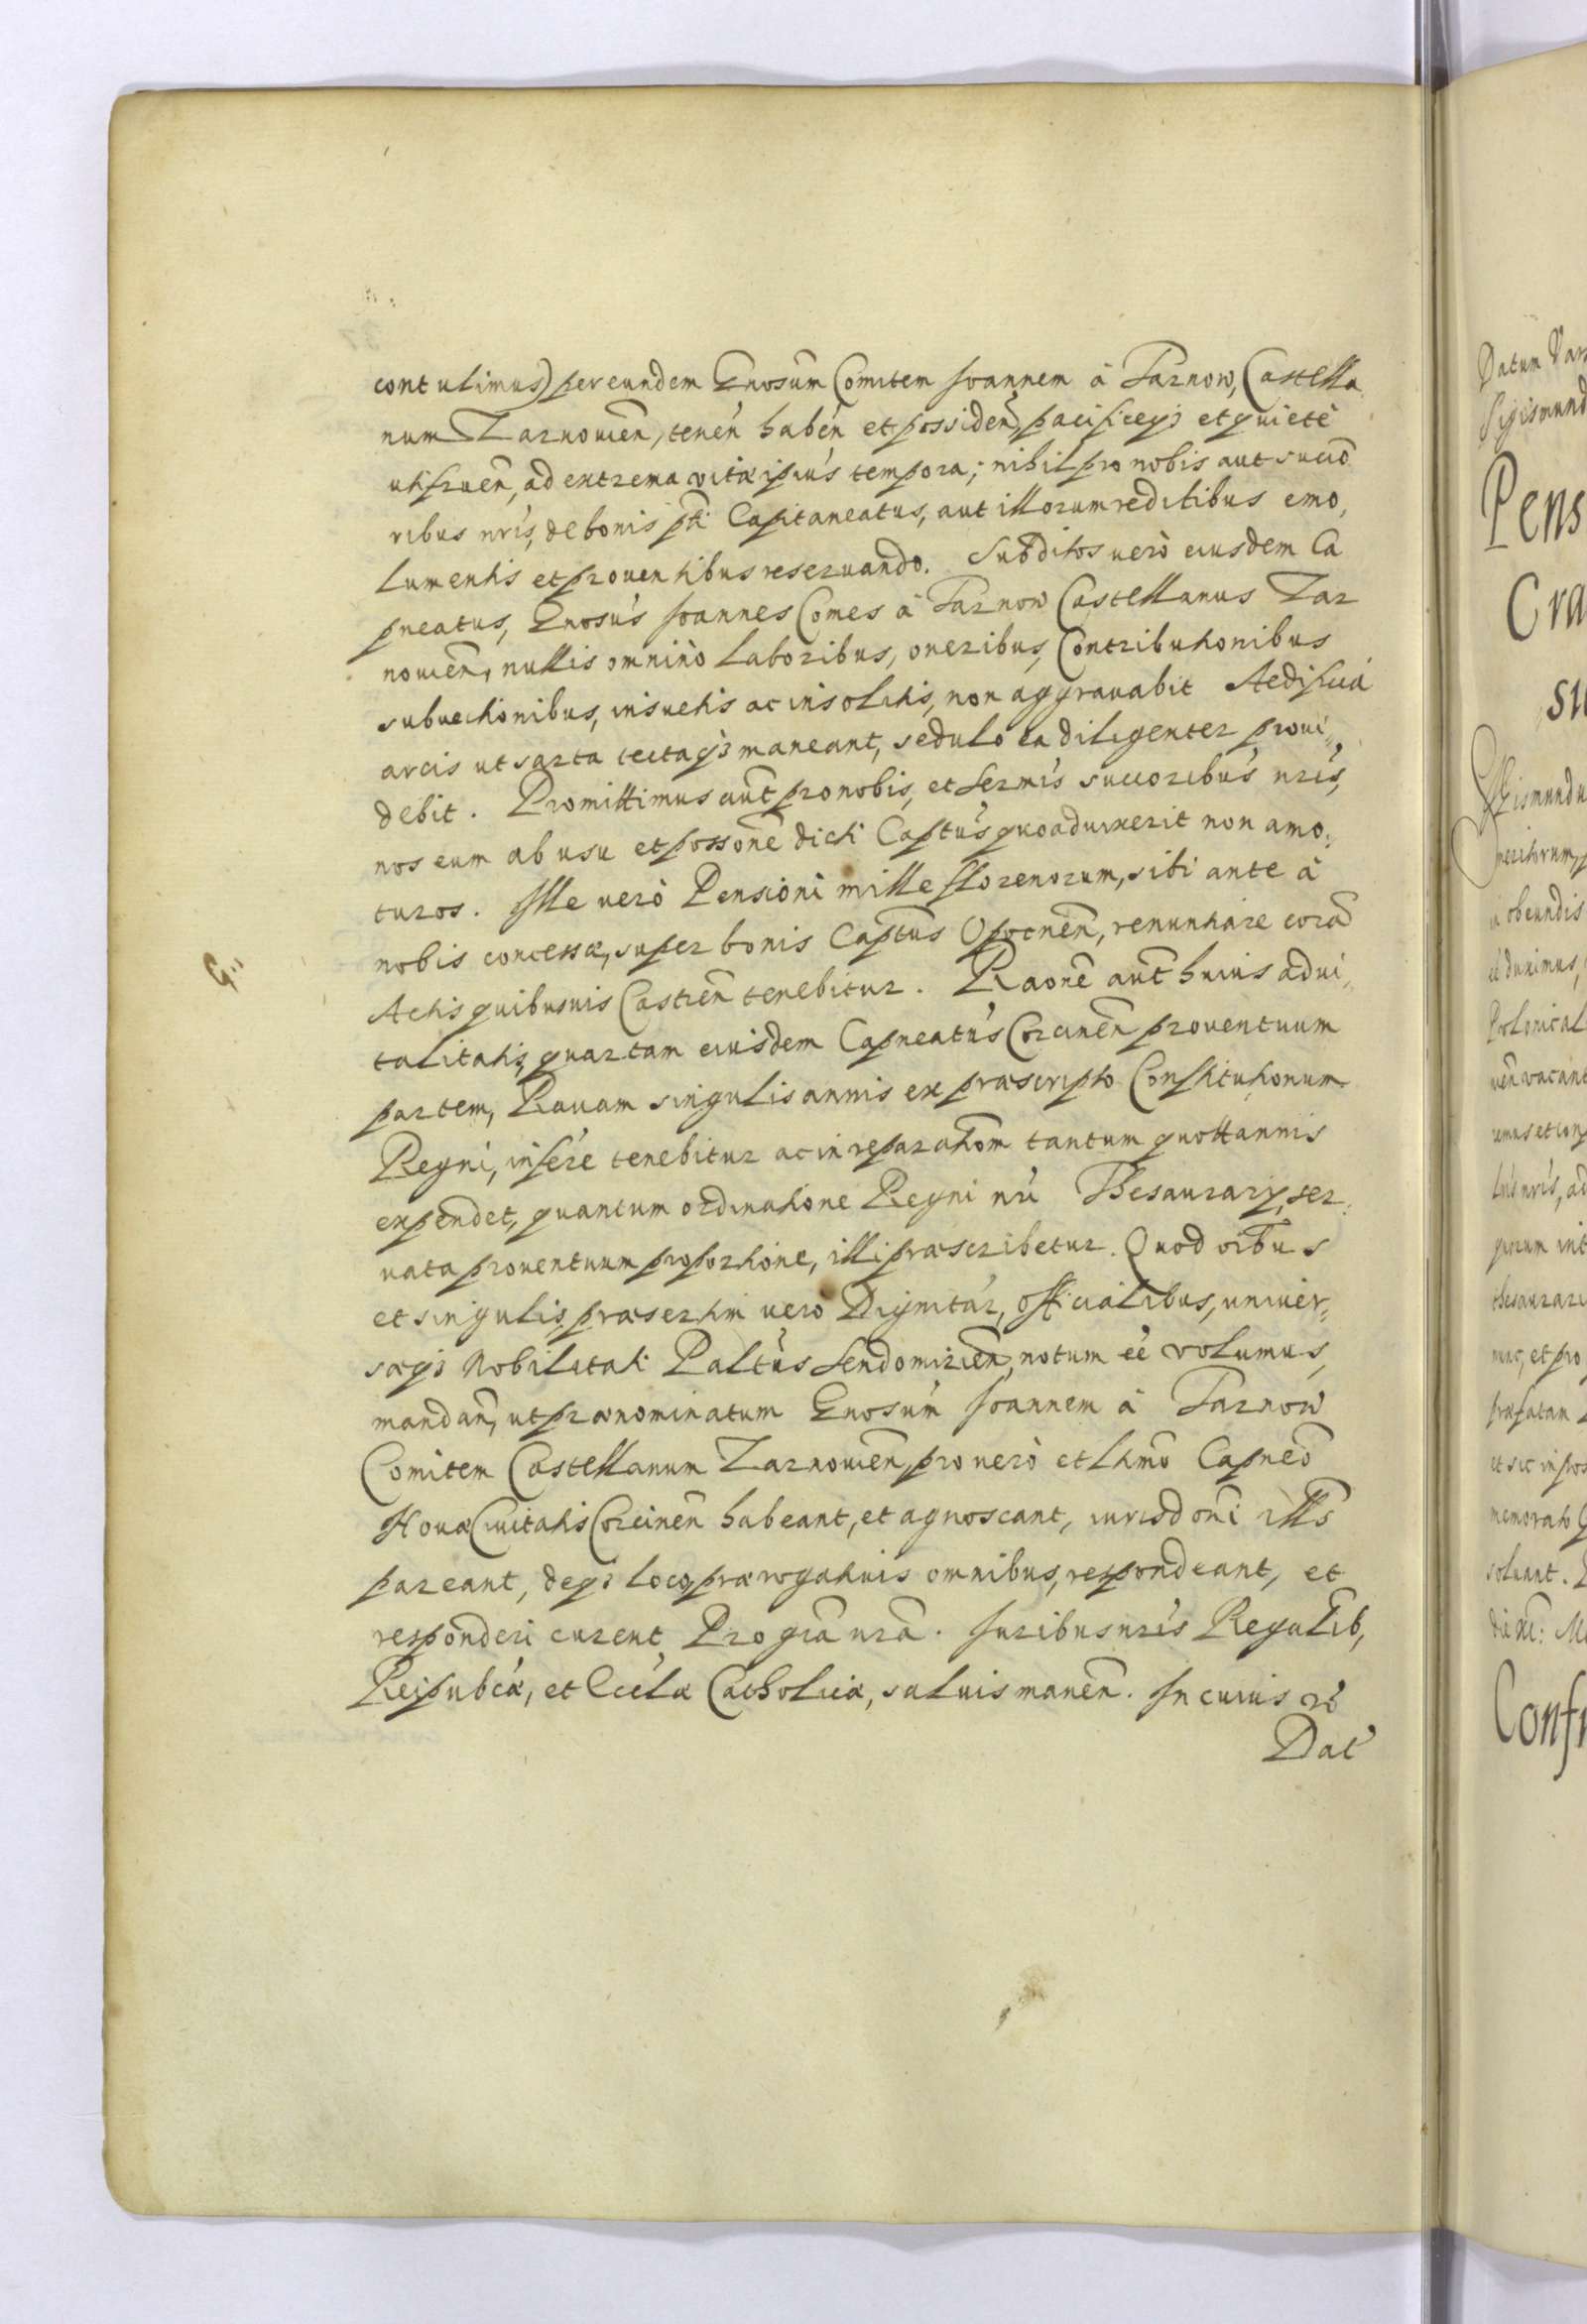 contulimus) per eundem Gnosum Comitem Joannem à Tarnow, Castella
num Zarnouien, tenen haben et possiden, pacificeq3 et quietè
utifruen, ad extrema vitæ ipius tempora; nihil pro nobis aut succo
ribus nris, de bonis pti Capitaneatus, aut illorum reditibus emo,
lumentis et prouentibus reseruando. Subditos uerò eiusdem Ca
pneatus, Gnosus Joannes Comes à Tarnow Castellanus Zar
nouien, nullis omninò laboribus, oneribus, Contributionibus
subuectionibus, insuetis ac insolitis, non aggrauabit Aedificia
arcis ut sarta tectaq3 maneant, sedulo ea diligenter proui„
debit. Promittimus aut pro nobis, et Sermis succoribus nris,
nos eum ab usu et possone dicti Captus quoaduixerit non amo„
turos. Ille uerò Pensioni mille florenorum, sibi ante à
nobis concessæ, super bonis Captus Opocnen, renuntiare cora
Actis quibusuis Castren tenebitur. Raone aut huius adui„
talitatis, quartam eiusdem Capneatus Corcinen prouentuum
partem, Rauam singulis annis ex præscripto Constitutionum
Regni, inferre tenebitur ac in reparatiom tantum quottannis
expendet, quantum ordinatione Regni nri Thesaurarij, ser„
uata prouentuum proportione, illi præscribetur. Quod oibus
et singulis, præsertim uero Dignitar, Officialibus, uniuer„
sæq3 Nobilitati Paltus Sendomirien, notum ee volumus,
mandan, ut prænominatum Gnosum Joannem à Tarnow
Comitem Castellanum Zarnouien, pro uerò et ltimo Capneo
Nouæ Ciuitatis Corcinen habeant, et agnoscant, iurisdoni ills
pareant, deq3 locq prærogatiuis omnibus, respondeant, et
responderi curent, Pro gra nra. Juribus nris Regalib,
Reipubcæ, et Eccles Catholicæ, saluis manen. In cuius re
Dat
G„
Datum Vars
Sigismund
Pens
Cra
su
Sigismundu
meritorum, p
obeundis
Polonical
uen vacant
remus et con
nris, ad
quum int
thesaurari
nunc, et pro
præfatam
et sic in pos
memorato G
soluant. D
die xi: M
Conf